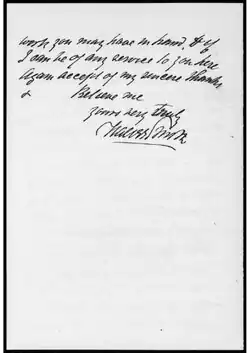 work you may have in hand, & if
I can be of any service to you here
Again accept of my sincere thanks
& Believe me
yours very truly